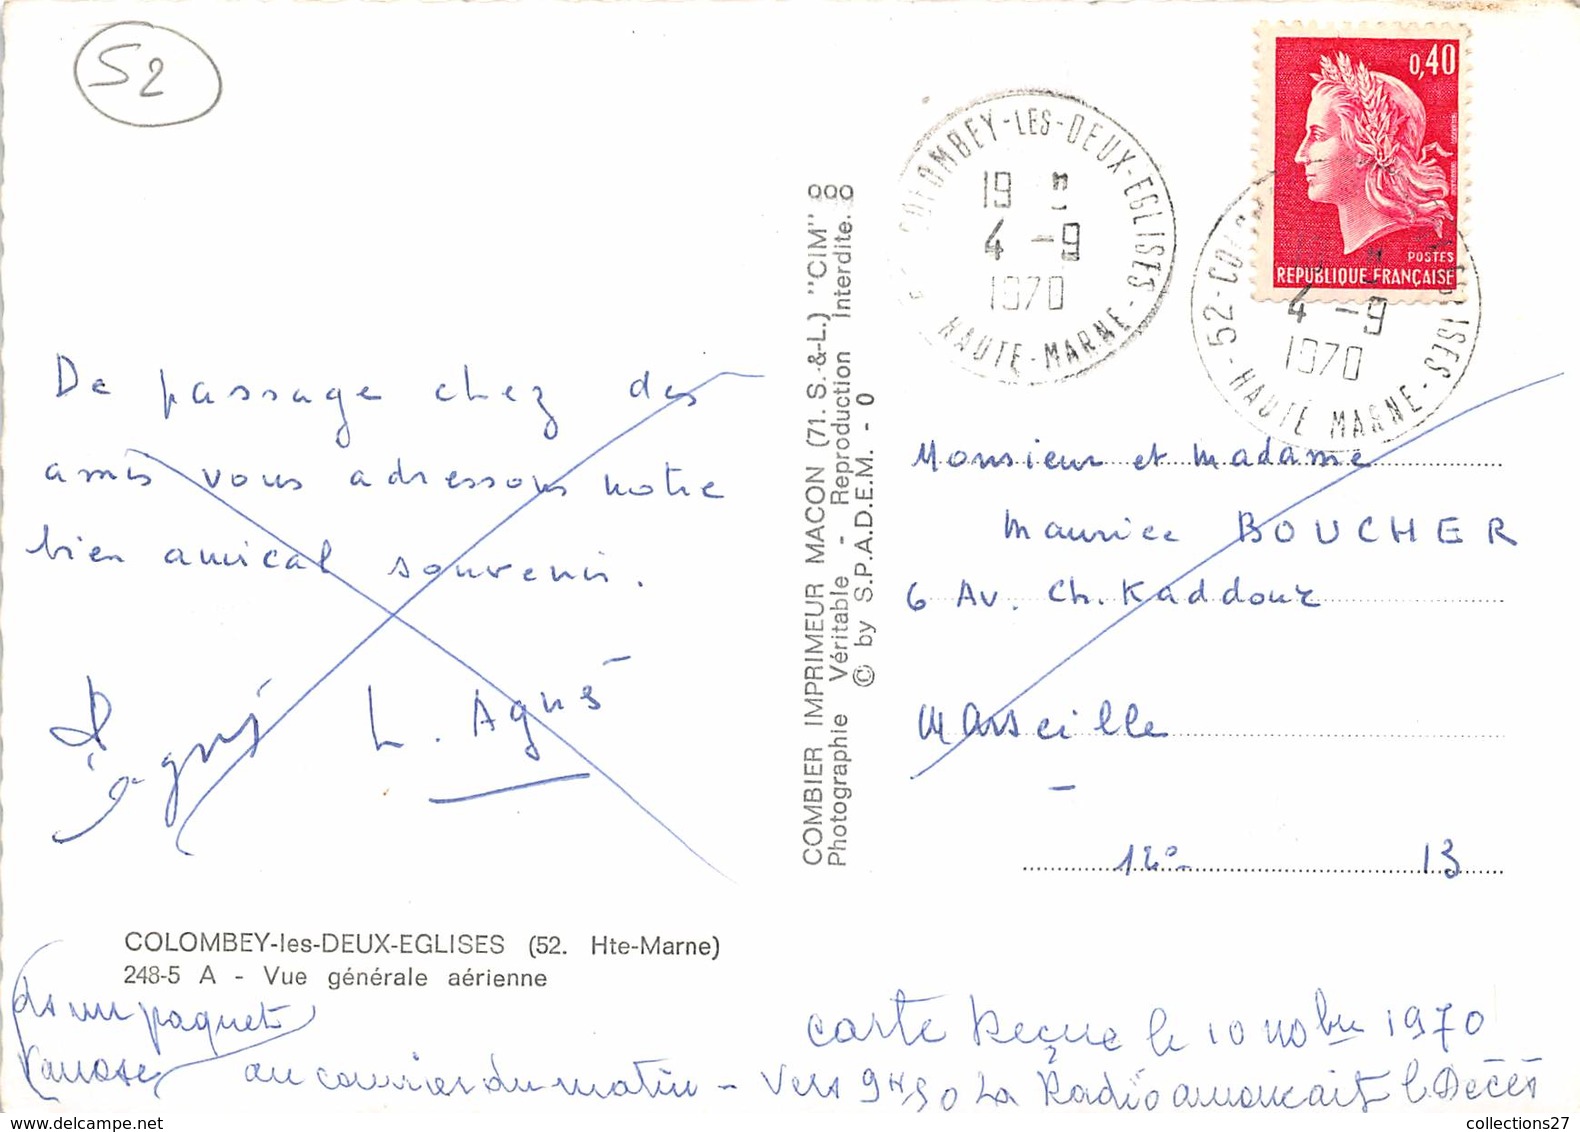 52
COLOMBEY-LES-DEUX-EGLISES
19 H
4 -9
1970
HAUTE-MARNE
0,40
POSTES
REPUBLIQUE FRANÇAISE
52-COLOMBEY-LES-DEUX-EGLISES
4 -9
1970
HAUTE MARNE
De passage chez des
amis vous adressons notre
bien amical souvenir.
L. Agnè
COMBIER IMPRIMEUR MACON (71. S.-&-L.) "CIM"
Photographie Véritable - Reproduction Interdite.
© by S.P.A.D.E.M. - 0
Monsieur et Madame
Maurice BOUCHER
6 Av. Ch. Kaddouz
Marseille
12e 13
COLOMBEY-les-DEUX-EGLISES (52. Hte-Marne)
248-5 A - Vue générale aérienne
ds un paquet
carte Reçue le 10 nobre 1970
au courrier du matin - Vers 9H,50 La Radio annoncait le Décès
collections27